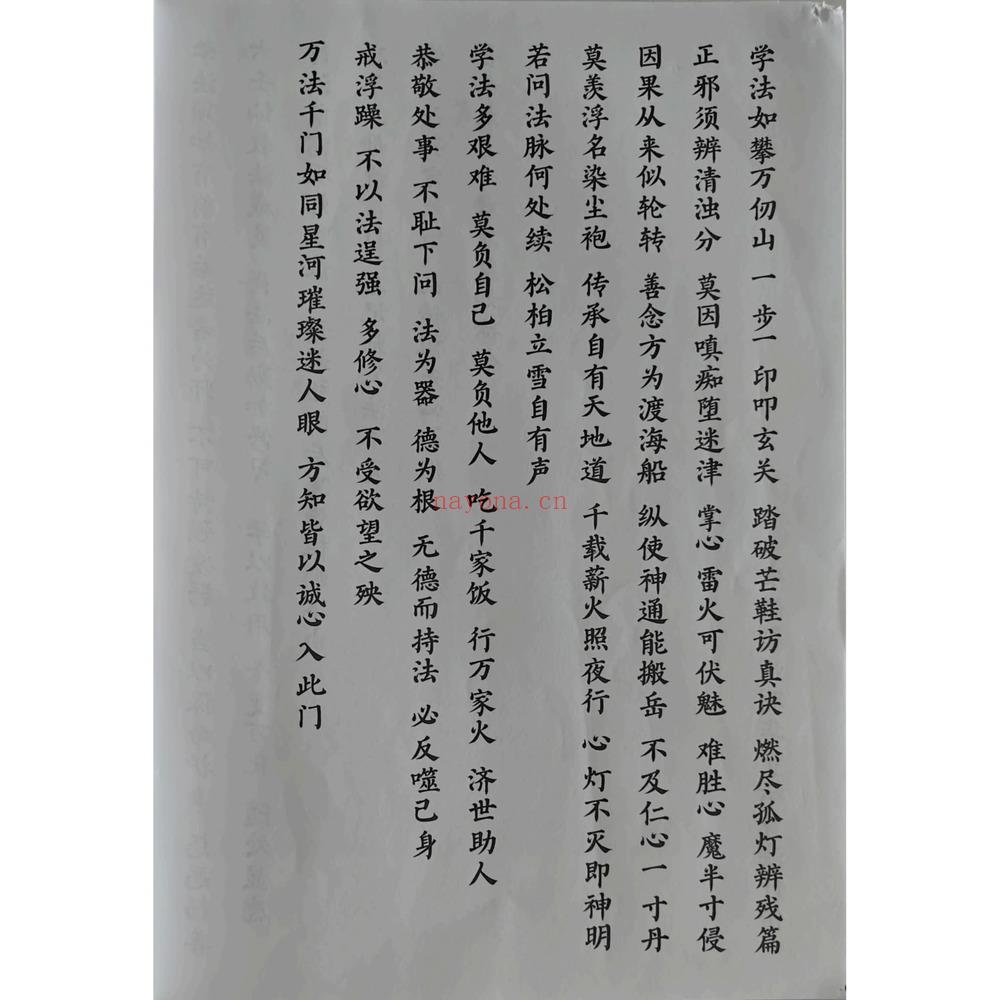 学法如攀万仞山 一步一印叩玄关 踏破芒鞋访真诀 燃尽孤灯辨残篇
正邪须辨清浊分 莫因嗔痴堕迷津 掌心雷火可伏魅 难胜心魔半寸侵
因果从来似轮转 善念方为渡海船 纵使神通能搬岳 不及仁心一寸丹
莫羡浮名染尘袍 传承自有天地道 千载薪火照夜行 心灯不灭即神明
若问法脉何处续 松柏立雪自有声
学法多艰难 莫负自己 莫负他人 吃千家饭 行万家火 济世助人
恭敬处事 不耻下问 法为器 德为根 无德而持法 必反噬己身
戒浮躁 不以法逞强 多修心 不受欲望之殃
万法千门如同星河璀璨迷人眼 方知皆以诚心入此门
nayona.cn